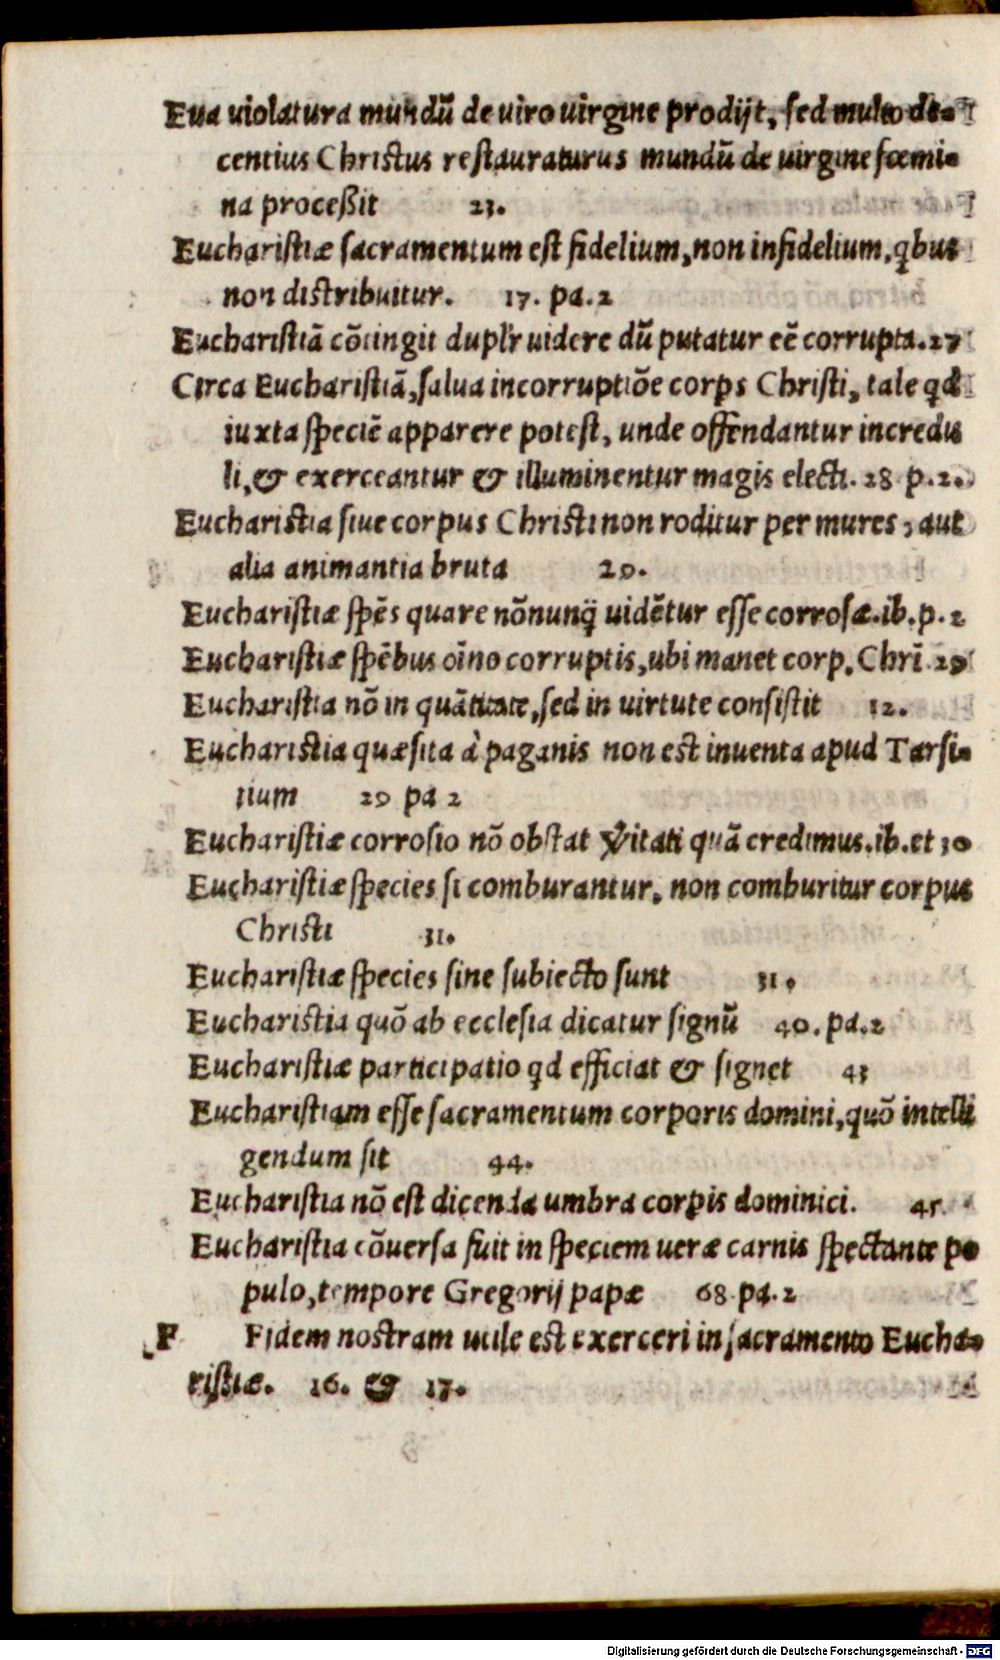 Eua violatura mundū de uiro uirgine prodijt, sed multo de-
centius Christus restauraturus mundū de uirgine fœmi-
na proceßit 23.
Eucharistiæ sacramentum est fidelium, non infidelium, qbus
non distribuitur. 17. pa. 2
Eucharistiā cōtingit duplr uidere dū putatur eē corrupta. 27
Circa Eucharistiā, salua incorruptiōe corps Christi, tale qd
iuxta speciē apparere potest, unde offendantur incredu
li, & exerceantur & illuminentur magis electi. 28 p. 2.
Eucharistia siue corpus Christi non roditur per mures, aut
alia animantia bruta 29.
Eucharistiæ spēs quare nōnunq̄ uidētur esse corrosæ. ib. p. 2
Eucharistiæ spēbus oīno corruptis, ubi manet corp. Chrī. 29
Eucharistia nō in quātitate, sed in uirtute consistit 12.
Eucharistia quæsita à paganis non est inuenta apud Tarsi-
tium 29 pa 2
Eucharistiæ corrosio nō obstat v̓itati quā credimus. ib. et 30
Eucharistiæ species si comburantur, non comburitur corpus
Christi 31.
Eucharistiæ species sine subiecto sunt 31.
Eucharistia quō ab ecclesia dicatur signū 40. pa. 2
Eucharistiæ participatio qd efficiat & signet 43
Eucharistiam esse sacramentum corporis domini, quō intelli
gendum sit 44.
Eucharistia nō est dicenda umbra corpis dominici. 45
Eucharistia cōuersa fuit in speciem ueræ carnis spectante po
pulo, tempore Gregorij papæ 68 pa. 2
F Fidem nostram utile est exerceri in sacramento Eucha-
ristiæ. 16. & 17.
Digitalisierung gefördert durch die Deutsche Forschungsgemeinschaft - DFG